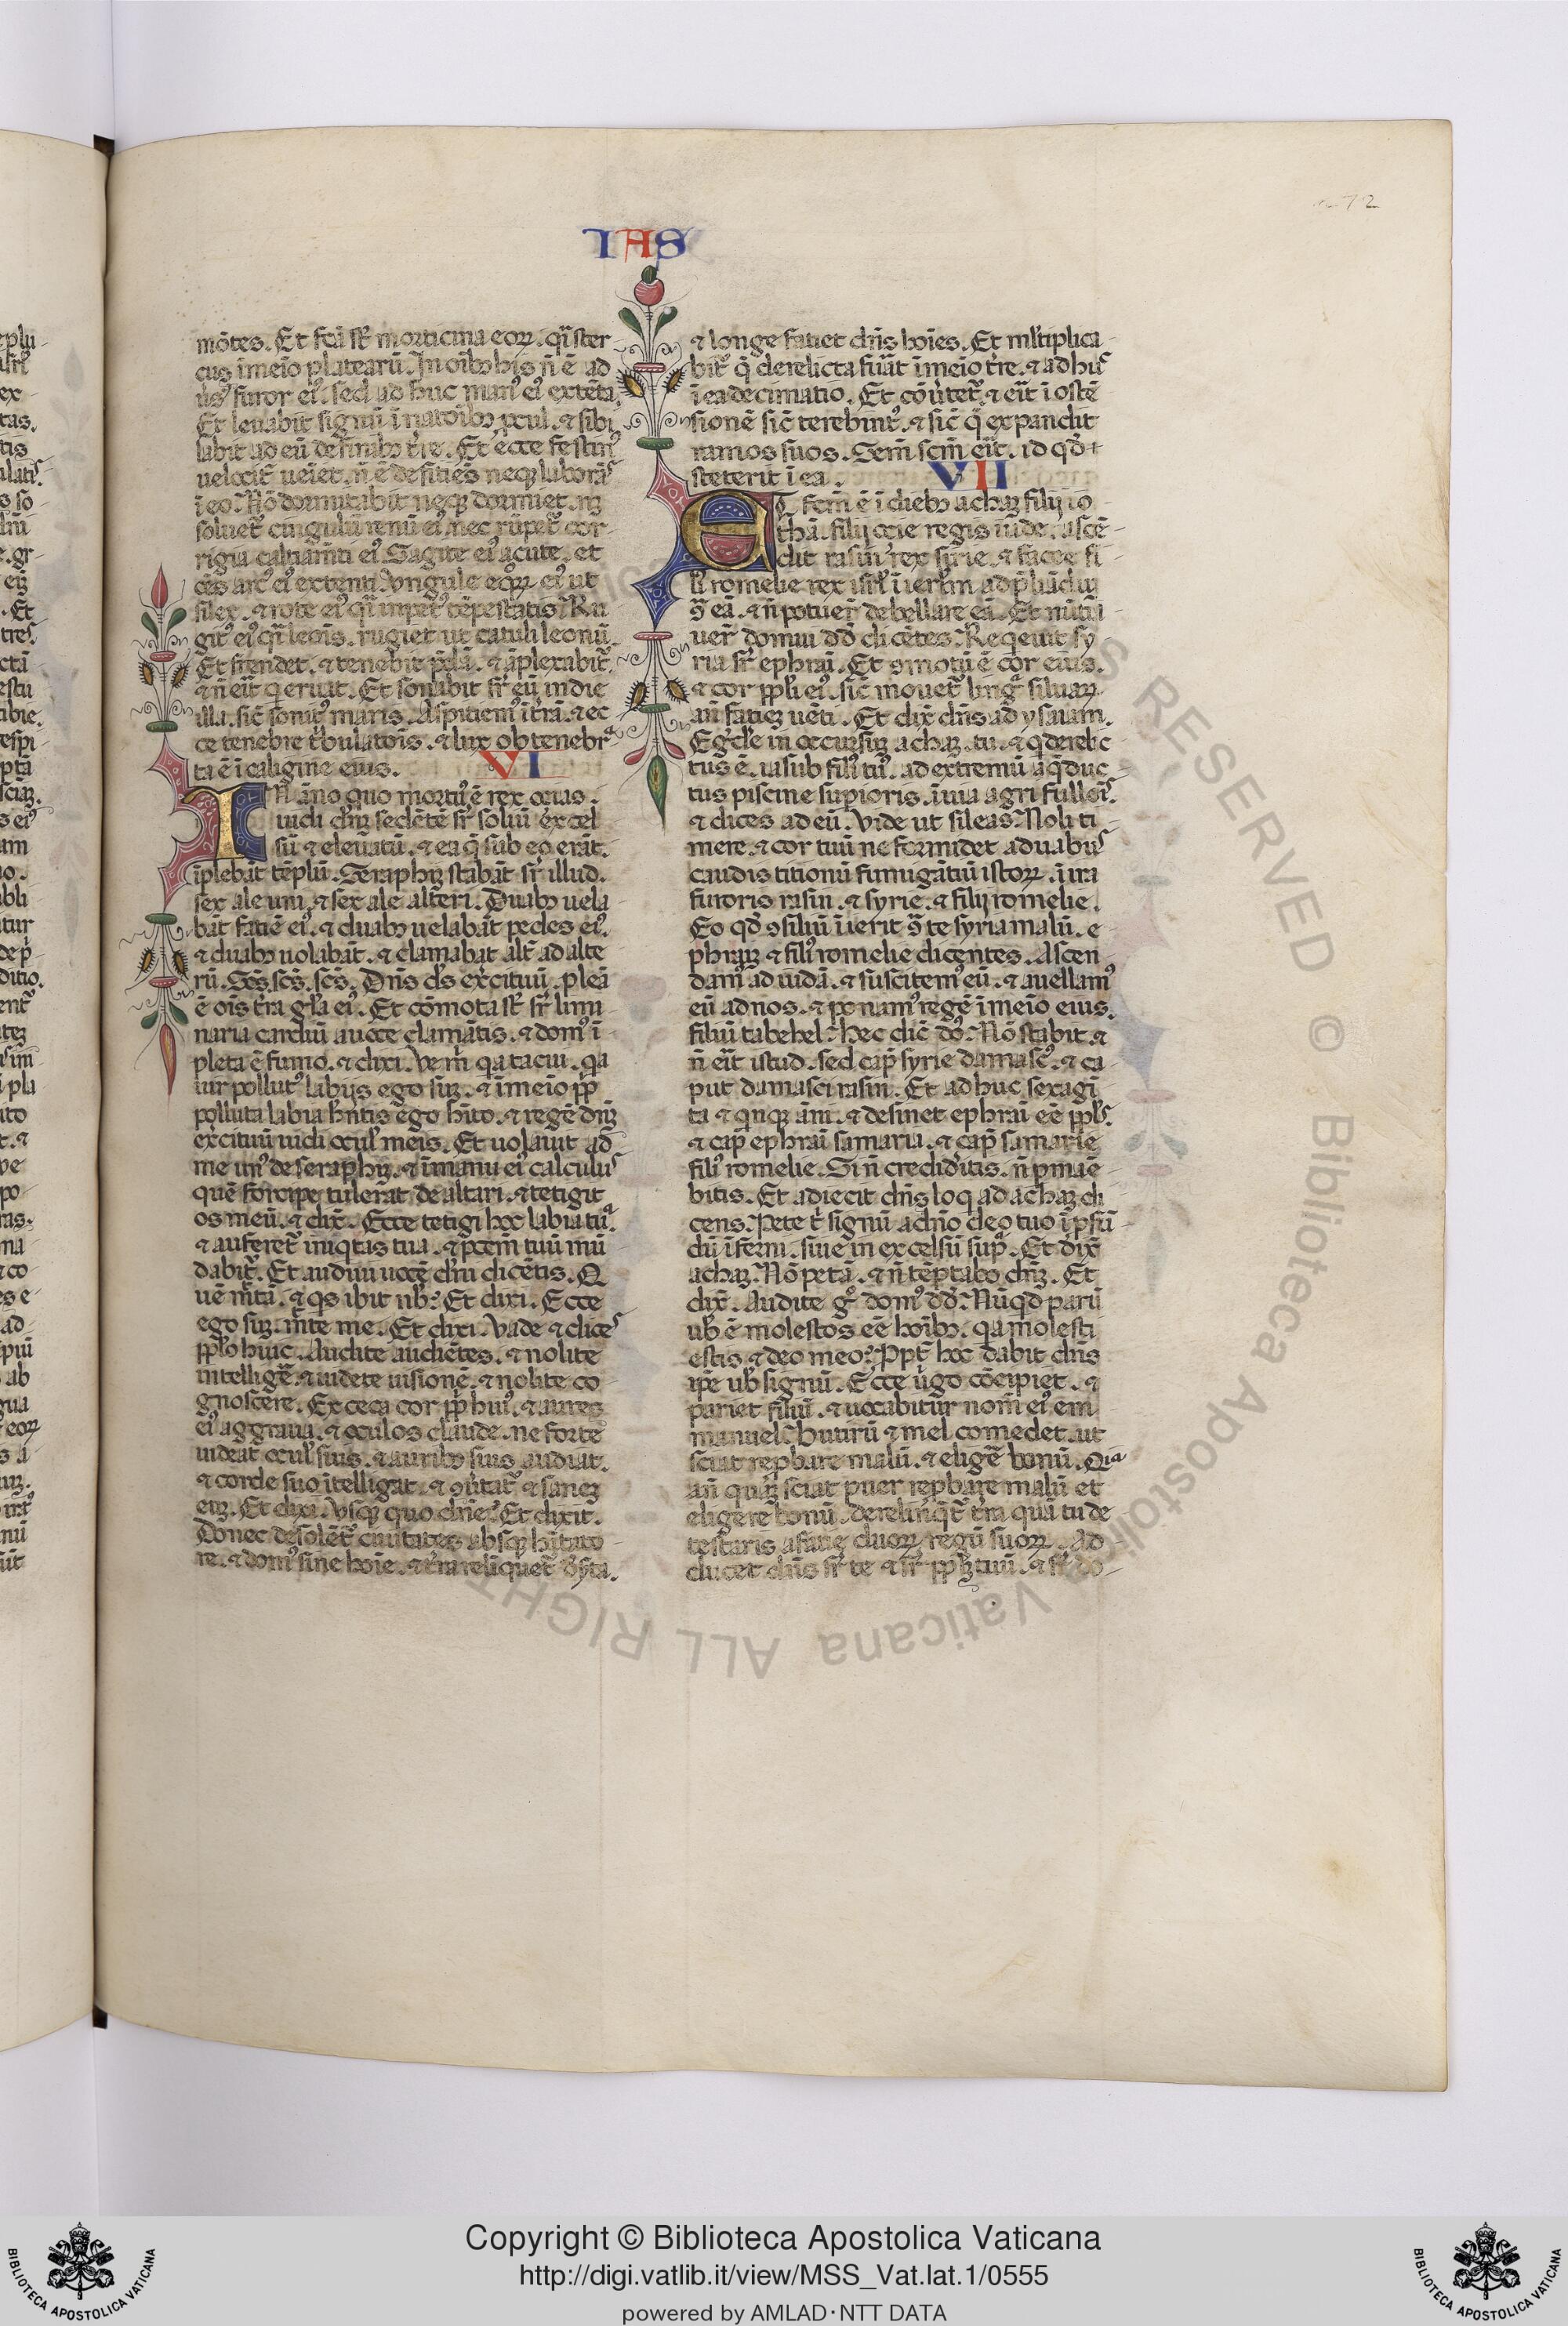 IAS
72
mōtes. Et fcā st̄ morticina eoꝝ. qͣ̄ ster-
cus ī meīo plateaꝝū. In oīb; his n̄ ē ad
ūsꝰ furor eiꝰ. sed ad huc manꝰ eiꝰ extēta.
Et levabit signū ī natōib; ꝓcul. ⁊ sibi
labit ad eū de finib; tr̄e. Et ecce festinꝰ
velocit̄ veīet. n̄ ē defitiēs neqꝫ laborās
ī eo. Nō dormitabit neqꝫ dormiet. nꝫ
soluet̄ cingulū renū eiꝰ. nec rūpet̄ cor-
rigia caltiam̄ti eiꝰ. Sagite eiꝰ acute. et
oēs arcꝰ eiꝰ extenti. Vngule eqͦꝝ eiꝰ ut
silex. ⁊ rote eiꝰ qͣ̄ impetꝰ tēpestatis. Ru
git̄ eiꝰ qͣ̄ leonis. rugiet ut catuli leonū.
Et frendet. ⁊ tenebit p̄dā. ⁊ āplexabit̄.
⁊ n̄ eīt q eruat. Et sonabit sr̄ eū in die
illa. sic̄ sonitꝰ maris. Aspitiemꝰ ī tr̄ā. ⁊ ec
ce tenebre tͥbulatōis. ⁊ lux obtenebrͣ
ta ē ī caligine eius.
VI
IN āno quo mortuꝰ ē rex ozias.
vidi dn̄ꝫ sedētē sr̄ soliū excel
sū ⁊ elevatū. ⁊ ea q̄ sub eo erāt.
īplebāt tēplū. Seraphꝫ stabāt sr̄ illud.
sex ale uni. ⁊ sex ale alteri. Duab; vela
bāt fatiē eiꝰ. ⁊ duab; velabāt pedes eiꝰ.
⁊ duab; volabāt. ⁊ clamabat alt̄ ad alte
rū. Scs̄. scs̄. scs̄. Dn̄s ds̄ exc̄ituū. plēa
ē oīs tr̄a glīa eiꝰ. Et cōmota st̄ sr̄ limi
naria cardiū avoce clamātis. ⁊ domꝰ ī-
pleta ē fumo. ⁊ dixi. Ve m̄ qͣ tacui. qͣ
uir pollutꝰ labijs ego sūꝫ. ⁊ ī meīo pp̄
polluta labia hn̄tis ego hīto. ⁊ regē dn̄ꝫ
exc̄ituū vidi oculꝰ meis. Et volavit ad
me unꝰ de seraphꝫ. ⁊ ī manu eiꝰ calculus
quē forcipe tulerat de altari. ⁊ tetigit
os meū. ⁊ dix̄. Ecce tetigi hoc labia tuͣ
⁊ auferet̄ iniqͥtas tua. ⁊ p̄ccm̄ tuū mū
dabit̄. Et audivi vocē dn̄i dicētis. Q
uē mͥtā. ⁊ qͥs ibit nb̄? Et dixi. Ecce
ego sūꝫ. mͥte me. Et dixi. Vade ⁊ dices
ppl̄o huic. Audite audiētes. ⁊ nolite
intelligē. ⁊ videte visionē. ⁊ nolite co
gnoscere. Exceca cor pp̄ huiꝰ. ⁊ aures
eiꝰ aggrava. ⁊ oculos claude. ne forte
videat oculꝰ suis. ⁊ aurib; suis audiat.
⁊ corde suo ītelligat. ⁊ ꝯūtat̄ ⁊ sanez
eūꝫ. Et dixi. Vsqꝫ quo dn̄e? Et dixit.
Donec desolēt̄ ciuitates absqꝫ hītato-
re. ⁊ domꝰ sine hoīe. ⁊ tr̄a reliquet̄ dꝰta.
⁊ longe fatiet dn̄s hoīes. Et ml̄tiplica-
bit̄ q̄ derelicta fuāt ī meīo tr̄e. ⁊ ad hūs
ī ea decimatio. Et cōūtet̄. ⁊ eīt ī ostē-
sionē sic̄ terebintꝰ. ⁊ sic̄ q̄ expandit
ramos suos. Sem̄ scm̄ eīt. id qd̄ +
steterit ī ea.
VII
ET fcm̄ ē ī dieb; achaꝫ filij io
thā. filij ozie regis iude. ascē-
dit rasin rex sirie. ⁊ facee fi-
lꝰ romelie rex isrl̄ ī ierlm̄ ad p̄liādū
ꝯͣ eā. ⁊ n̄ potuer̄ debellare eā. Et nūtia
ver̄ domui dd̄ dicētes. Reqͥevit sy
ria sr̄ ephraī. Et ꝯmotū ē cor eius.
⁊ cor ppl̄i eiꝰ. sic̄ movet̄ lingͣ siluaꝝ
an̄ fatieꝫ vēti. Et dix̄ dn̄s ad ysaiam.
Egrd̄e in occursūꝫ achaꝫ. tu. ⁊ q derelic-
tus ē. iasub filiꝰ tuꝰ. ad extremū aqͣduc-
tus piscine supioris. ī uia agri fullōis.
⁊ dices ad eū. Vide ut sileas. Noli ti-
mere. ⁊ cor tuū ne formidet aduabus
caudis titionū fumigātiū istoꝝ. ī ira
furoris rasin. ⁊ syrie. ⁊ filij romelie.
Eo qd̄ ꝯsiliū īierit ꝯͣ te syria malū. e
phraꝫ ⁊ filiꝰ romelie dicentes. Ascen
damꝰ ad iudā. ⁊ suscitemꝰ eū. ⁊ avellamꝰ
eū ad nos. ⁊ ponamꝰ regē ī meīo eius.
filiū tabehel. Hec dic̄ ds̄. Nō stabit. ⁊
n̄ eīt istud. sed cap̄ syrie damascꝰ. ⁊ ca-
put damasci rasin. Et ad huc sexagī
ta ⁊ qnqꝫ ān̄i. ⁊ desinet ephraī eē ppl̄s.
⁊ cap̄ ephraī samaria. ⁊ cap̄ samarie
filiꝰ romelie. Si n̄ credid̄itis. n̄ pmaē-
bitis. Et adiecit dn̄s loq ad achaꝫ di
cens. Pete t̄ signū a dn̄o deo tuo ī pfū-
dū īferni. sive in excelsū sup̄. Et dix̄
achaꝫ. Nō petā. ⁊ n̄ tēptabo dn̄ꝫ. Et
dix̄. Audite gͦ domꝰ dd̄. Nūqd̄ parū
ub̄ ē molestos eē hoīb;. qͣ molesti
estis ⁊ deo meo? Ppt̄ hoc dabit dn̄s
ip̄e ub̄ signū. Ecce ūgo cōcipiet. ⁊
pariet filiū. ⁊ vocabitur nom̄ eiꝰ em
manuel. Butirū ⁊ mel comedet. ut
sciat repbare malū. ⁊ eligē bonū. Qia
an̄ quāꝫ sciat puer repbare malū et
eligere bonū. derelinqet̄ tr̄a quā tu de
testaris afatie duoꝝ regū suoꝝ. Ad-
ducet dn̄s sr̄ te ⁊ sr̄ pplꝫ tuū. ⁊ sr̄ do-
Copyright © Biblioteca Apostolica Vaticana
http://digi.vatlib.it/view/MSS_Vat.lat.1/0555
powered by AMLAD·NTT DATA
BIBLIOTECA APOSTOLICA VATICANA
BIBLIOTECA APOSTOLICA VATICANA
© Biblioteca Apostolica Vaticana ALL RIGHTS RESERVED